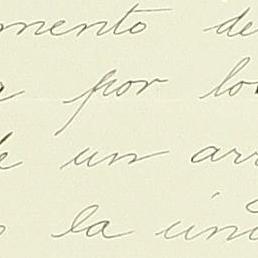 mento de
por lo
de un arr
la úni